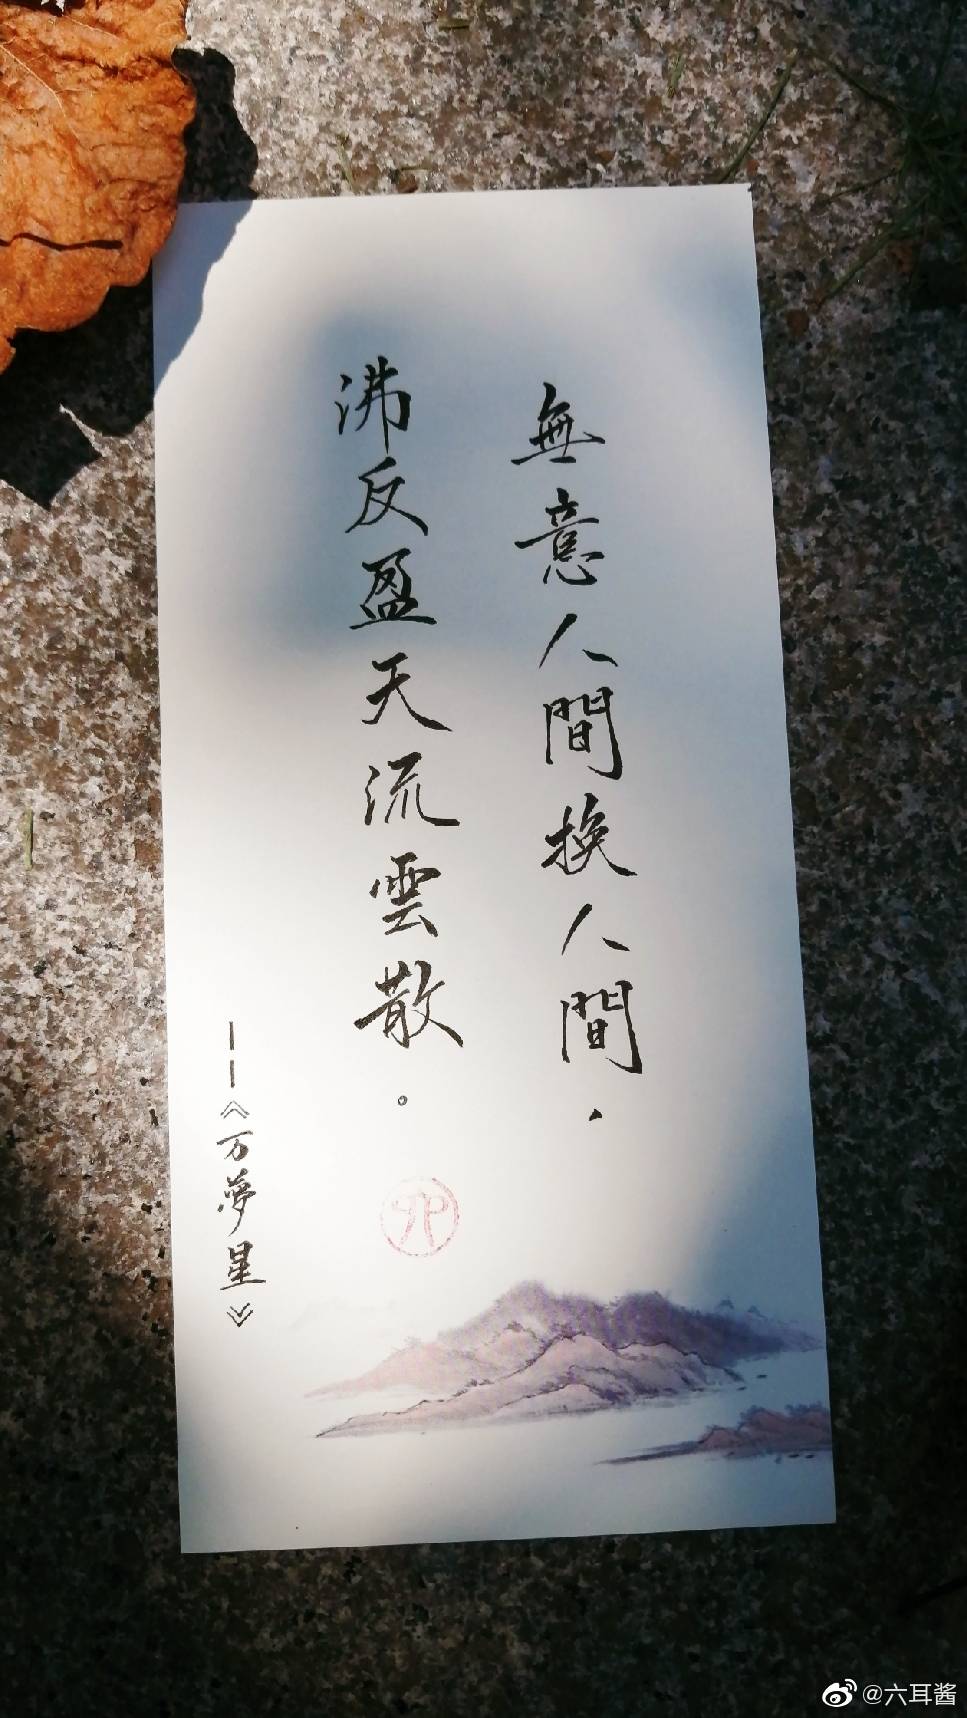 無意人間換人間，
沸反盈天流雲散。
——《万夢星》
@六耳酱